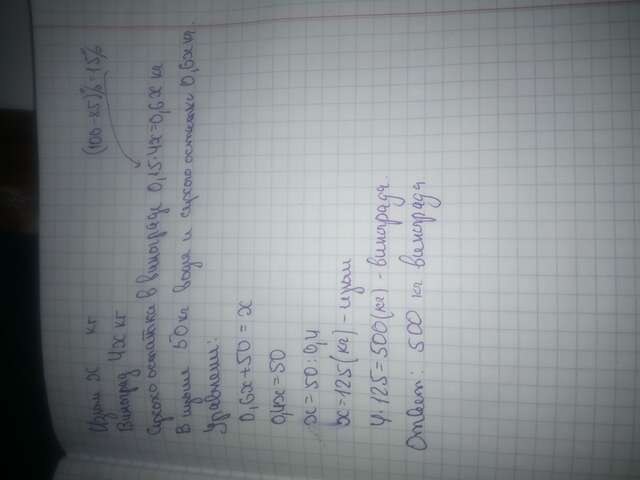 Изюм x кг
Виноград 4x кг
(100-85)%=15%
Сухого остатка в винограде 0,15·4x=0,6x кг
В изюме 50 кг воды и сухого остатка 0,6x кг.
Уравнение:
0,6x+50=x
0,4x=50
x=50:0,4
x=125(кг)-изюм
4·125=500(кг)-винограда.
Ответ: 500 кг винограда